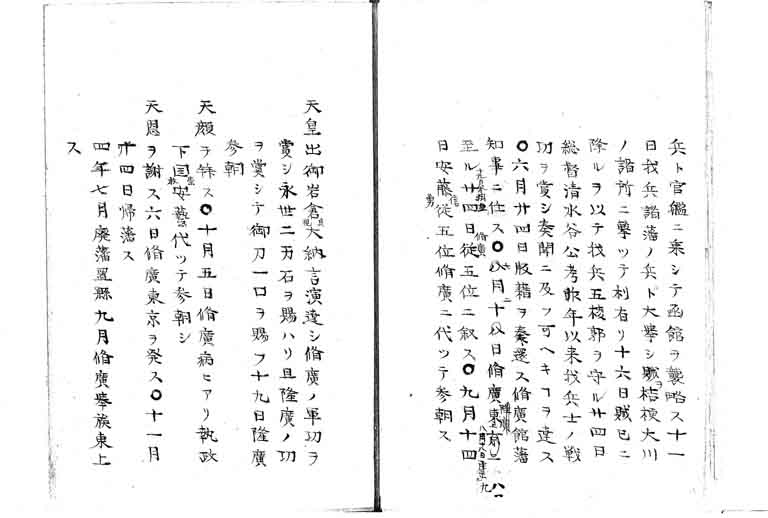 兵ト官艦ニ乗シテ函館ヲ襲略ス十一
日我兵諸藩ノ兵ト大挙シ賊ヲ桔梗大川
ノ諸所ニ撃ツテ利有リ十六日賊已ニ
降ルヲ以テ我兵五稜郭ヲ守ル廿四日
総督清水谷公考昨年以来我兵士ノ戦
功ヲ賞シ奏聞ニ及フ可ヘキヿヲ達ス
〇六月廿四日版籍ヲ奏還ス脩廣館藩
知事ニ任ス〇八月十八日脩廣東京ニ
至ル廿四日従五位ニ叙ス〇九月十四
日安藤従五位脩廣ニ代ツテ参朝ス
天皇出御岩倉大納言演達シ脩廣ノ軍功ヲ
賞シ永世二万石ヲ賜ハリ且隆廣ノ功
ヲ賞シテ御刀一口ヲ賜フ十九日隆廣
参朝
天顔ヲ拝ス〇十月五日脩廣病ヒアリ執政
下国安藝代ツテ参朝シ
天恩ヲ謝ス六日脩廣東京ヲ発ス〇十一月
廿四日帰藩ス
四年七月廃藩置縣九月脩廣挙族東上
ス